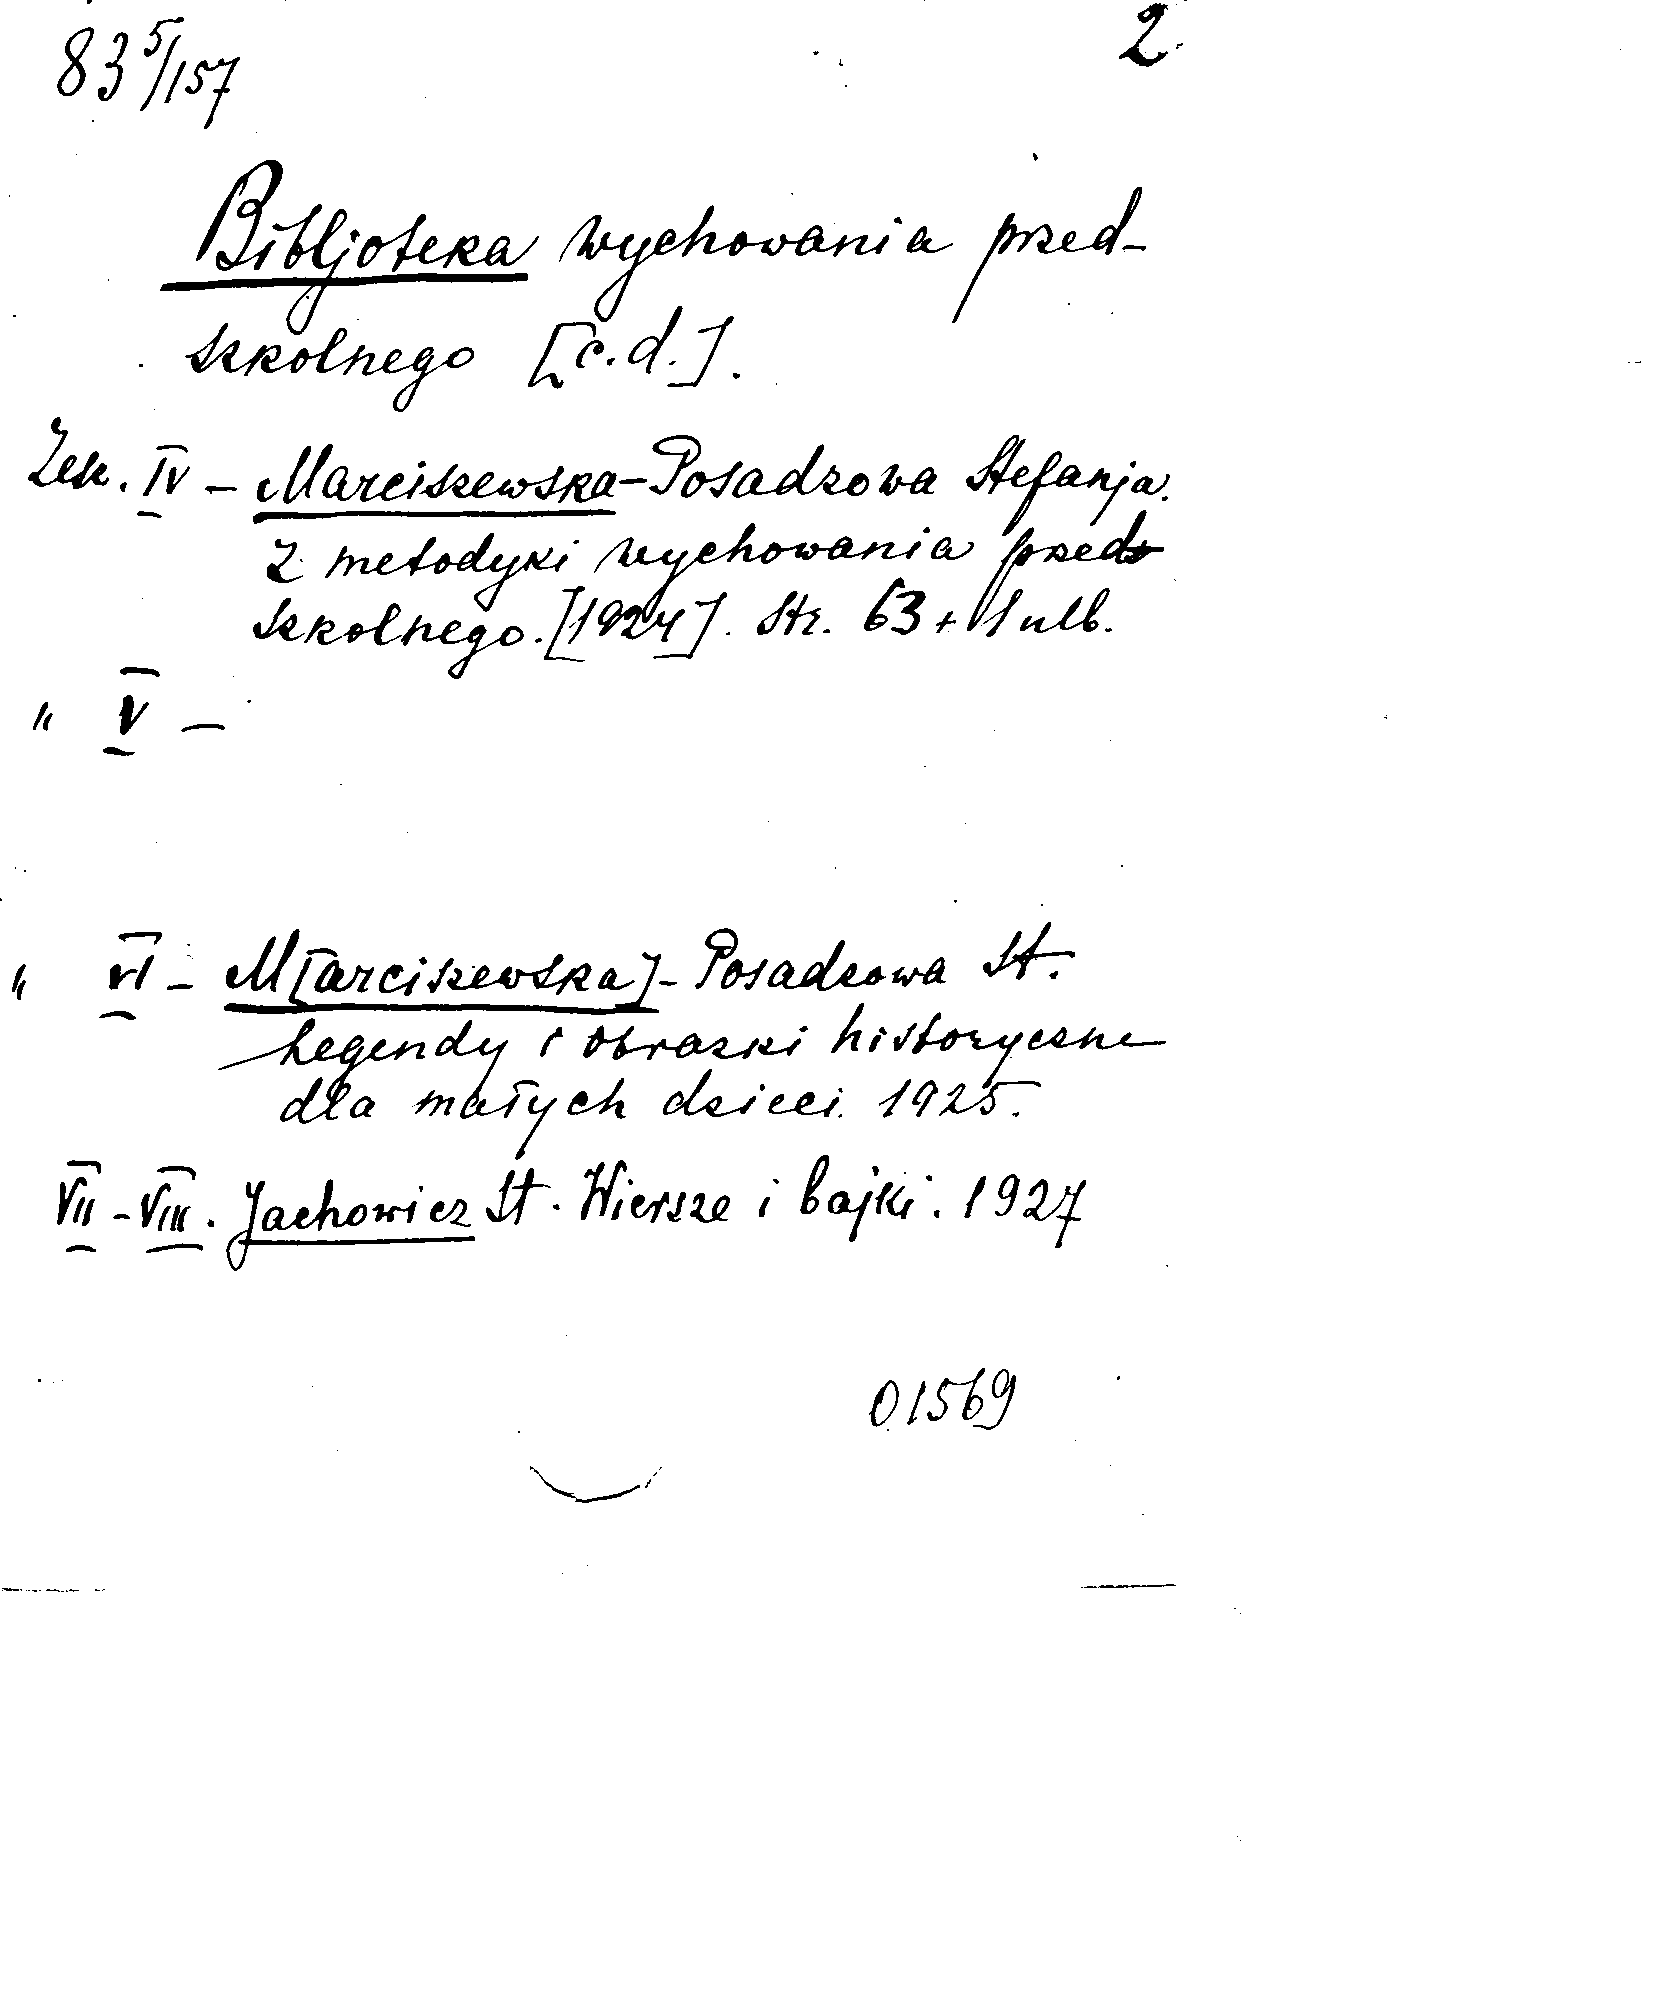 83 5/157
2
Bibljoteka wychowania przed-
szkolnego [c.d.].
Zesz. IV – Marciszewska-Posadzowa Stefanja.
Z metodyki wychowania przed-
szkolnego. [1924]. Str. 63 + 1 ulb.
" V –
" VI – M[arciszewska]-Posadzowa St.
Legendy i obrazki historyczne
dla małych dzieci. 1925.
VII-VIII. Jachowicz St. Wiersze i bajki. 1927
01569